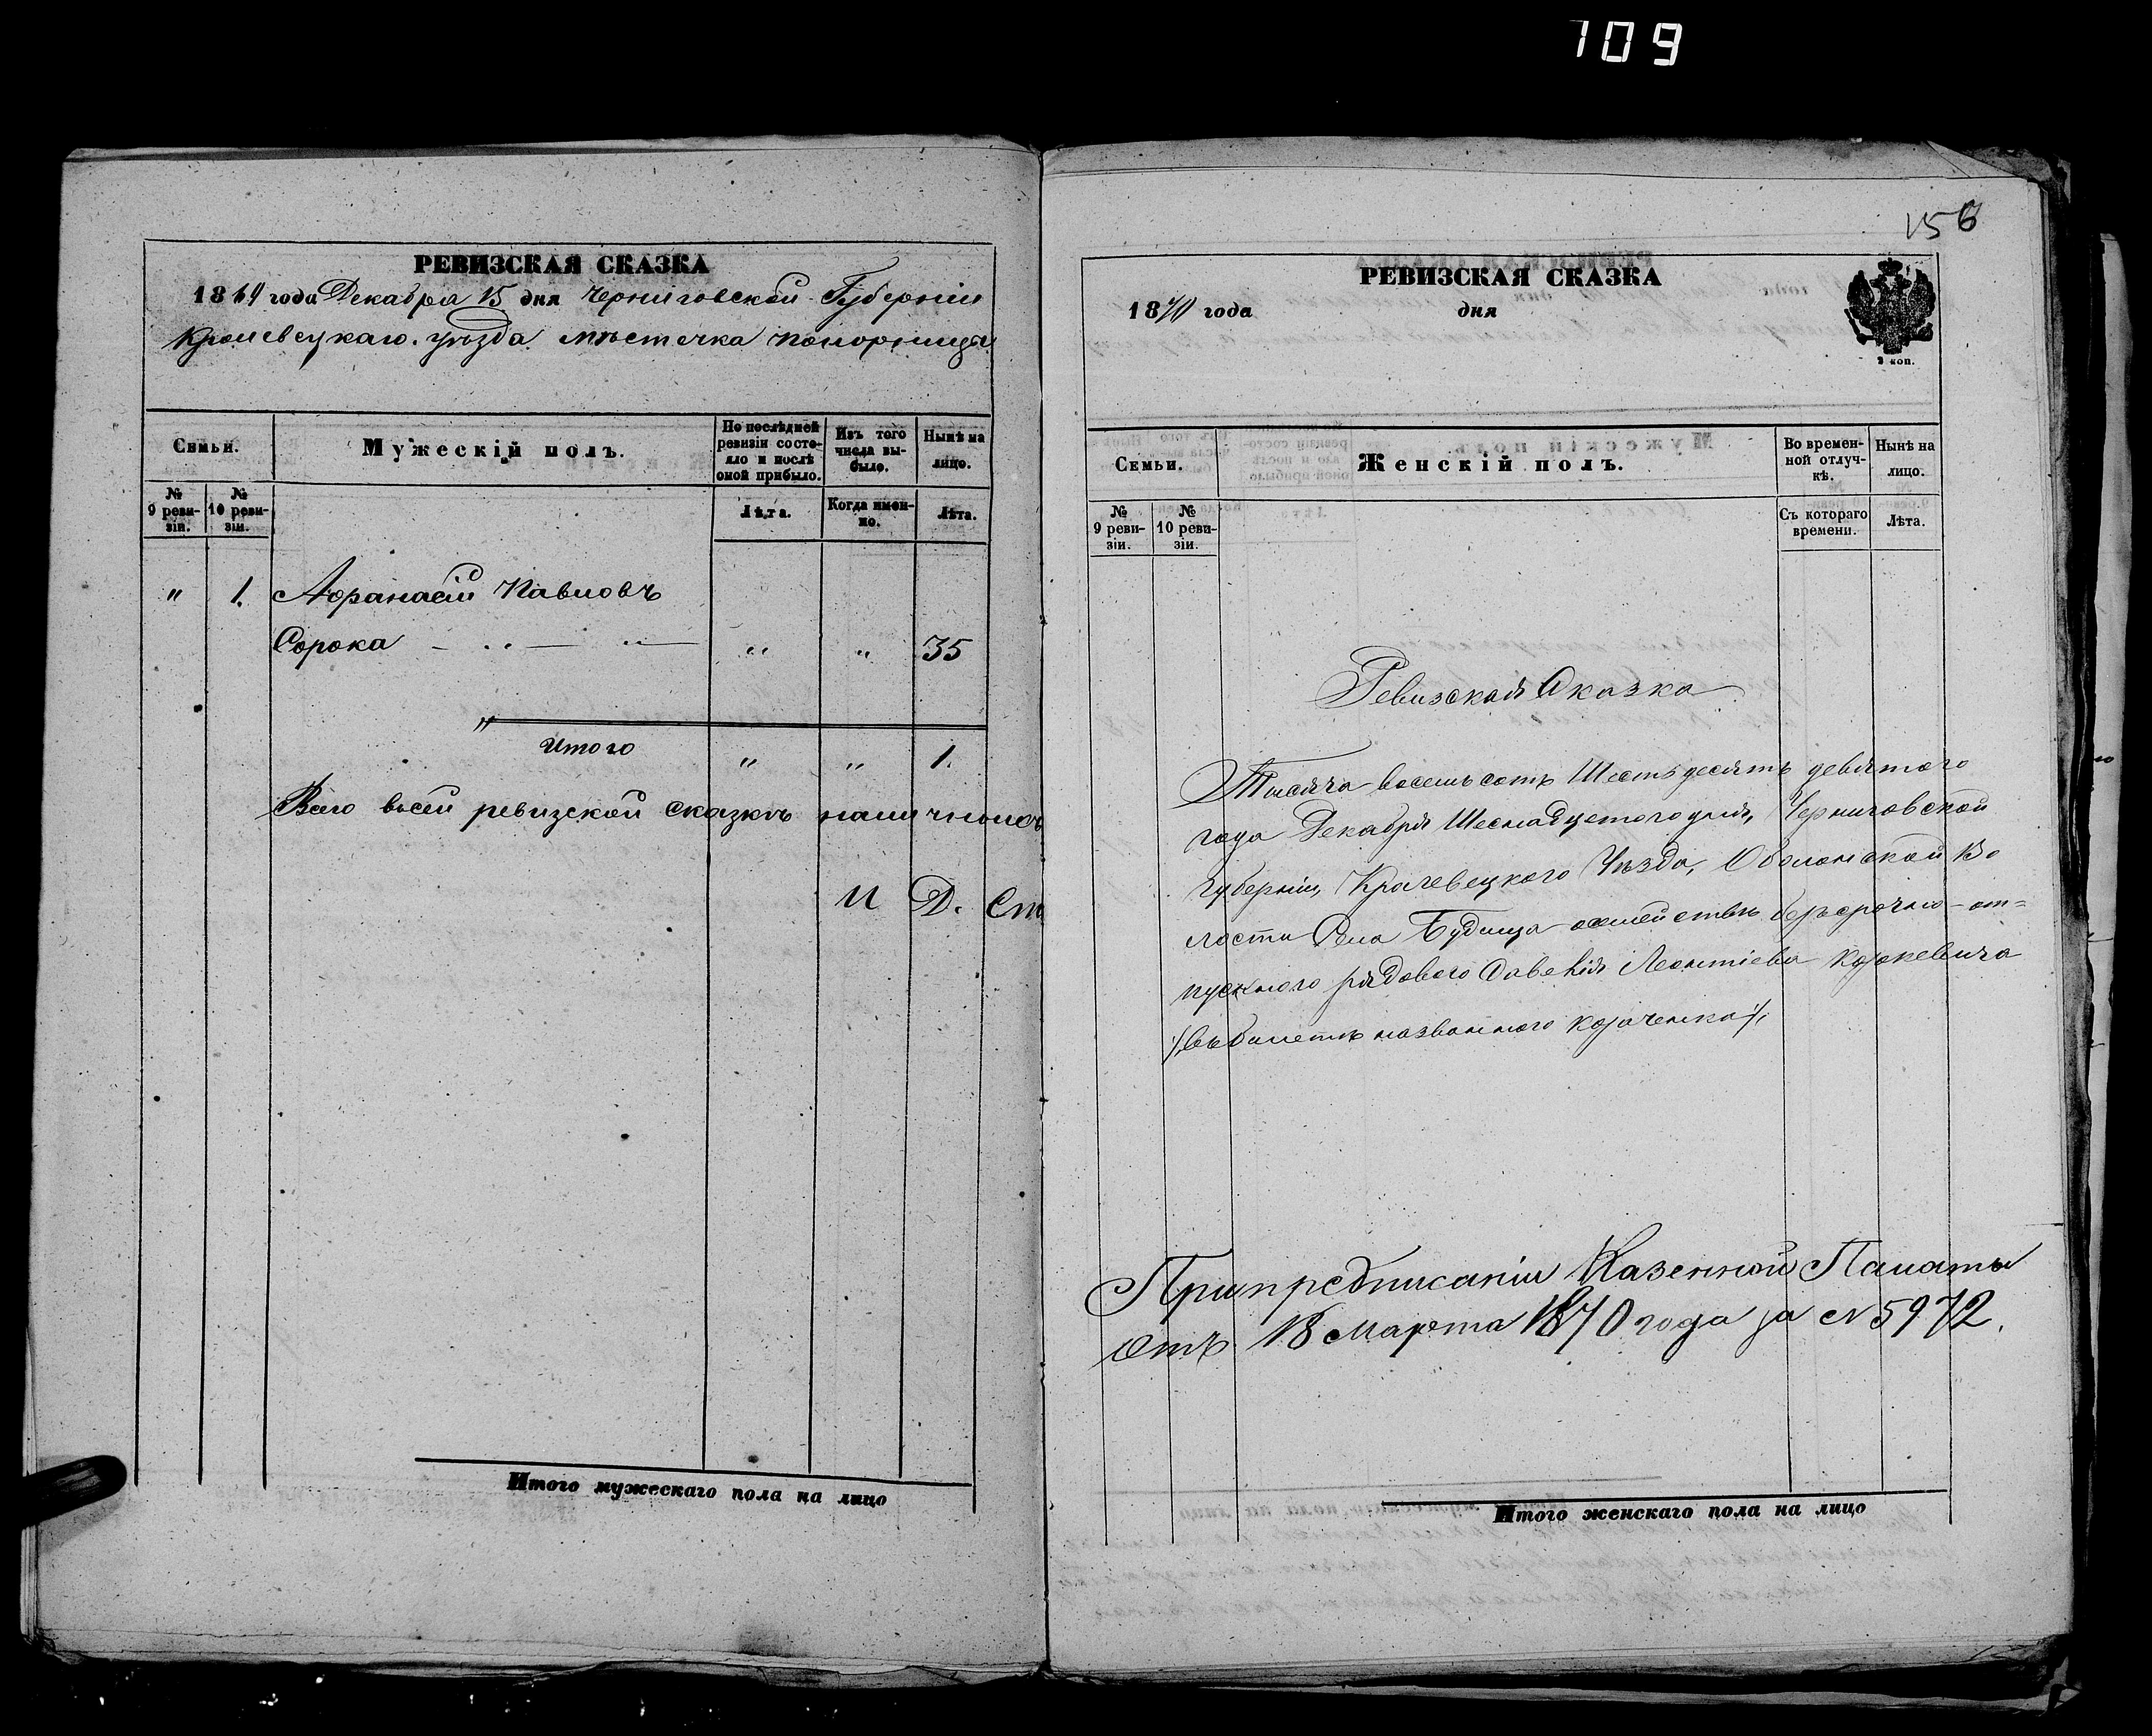 109
РЕВИЗСКАЯ СКАЗКА
1869 года Декабря 15 дня Черниговской Губерніи
Кролевецкаго уѣзда мѣстечка Понорницы
Семьи.
Мужескій полъ.
По послѣдней ревизіи состояло и послѣ оной прибыло.
Изъ того числа выбыло.
Нынѣ на лицо.
№ 9 ревизіи.
№ 10 ревизіи.
Лѣта.
Когда именно.
Лѣта.
" 1. Афанасій Павловъ
Сорока " " 35
Итого " " 1.
Всего въ сей ревизской сказкѣ
И Д. Ст
Итого мужескаго пола на лицо
156
РЕВИЗСКАЯ СКАЗКА
1870 года дня
2 коп.
Семьи.
Женскій полъ.
Во временной отлучкѣ.
Нынѣ на лицо.
№ 9 ревизіи.
№ 10 ревизіи.
Съ котораго времени.
Лѣта.
Ревизская Сказка
Тысяча восемьсотъ Шестьдесятъ девятого
года Декабря Шеснадцетого дня, Черниговской
губерніи, Кролевецкого Уѣзда, Оболонской Во
лости Села Будища о семействѣ безсрочно-от=
пускного рядового Савенія Леонтіева
/въ билетѣ названного
При предписаніи Казенной Палаты
отъ 18 Марта 1870 года за N 5972.
Итого женскаго пола на лицо